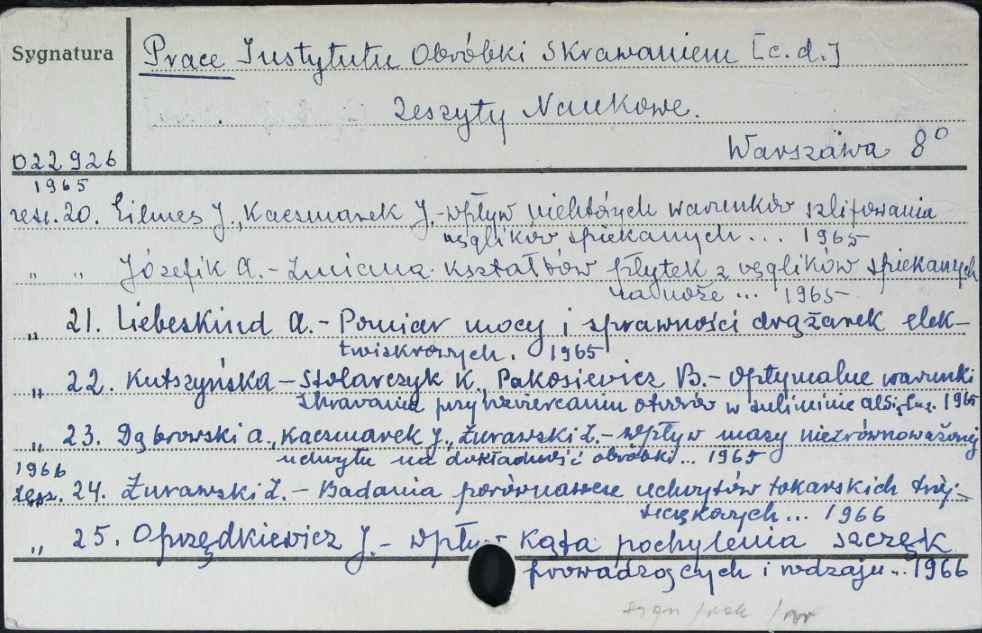 Sygnatura
Prace Instytutu Obróbki Skrawaniem [c.d.]
Zeszyty Naukowe.
Warszawa 8°
022926
1965
zesz. 20. Eilmes J., Kaczmarek J. - wpływ niektórych warunków szlifowania
węglików spiekanych... 1965
„ „ Józefik A. - Zmiana kształtów płytek z węglików spiekanych
na noże ... 1965
„ 21. Liebeskind A. - Pomiar mocy i sprawności drążarek elek-
troiskrowych. 1965
„ 22. Kutszyńska - Stolarczyk K., Pakosiewicz B. - Optymalne warunki
skrawania przy wierceniu otworów w siluminie 1965
„ 23. Dąbrowski A., Kaczmarek J., Żurawski Z. - Wpływ masy niezrównoważonej
uchwytu na dokładność obróbki... 1965
1966
zesz. 24. Żurawski Z. - Badania porównawcze uchwytów tokarskich trój-
szczękowych ... 1966
„ 25. Oprzędkiewicz J. - wpływ kąta pochylenia szczęk
prowadzących i rodzaju... 1966